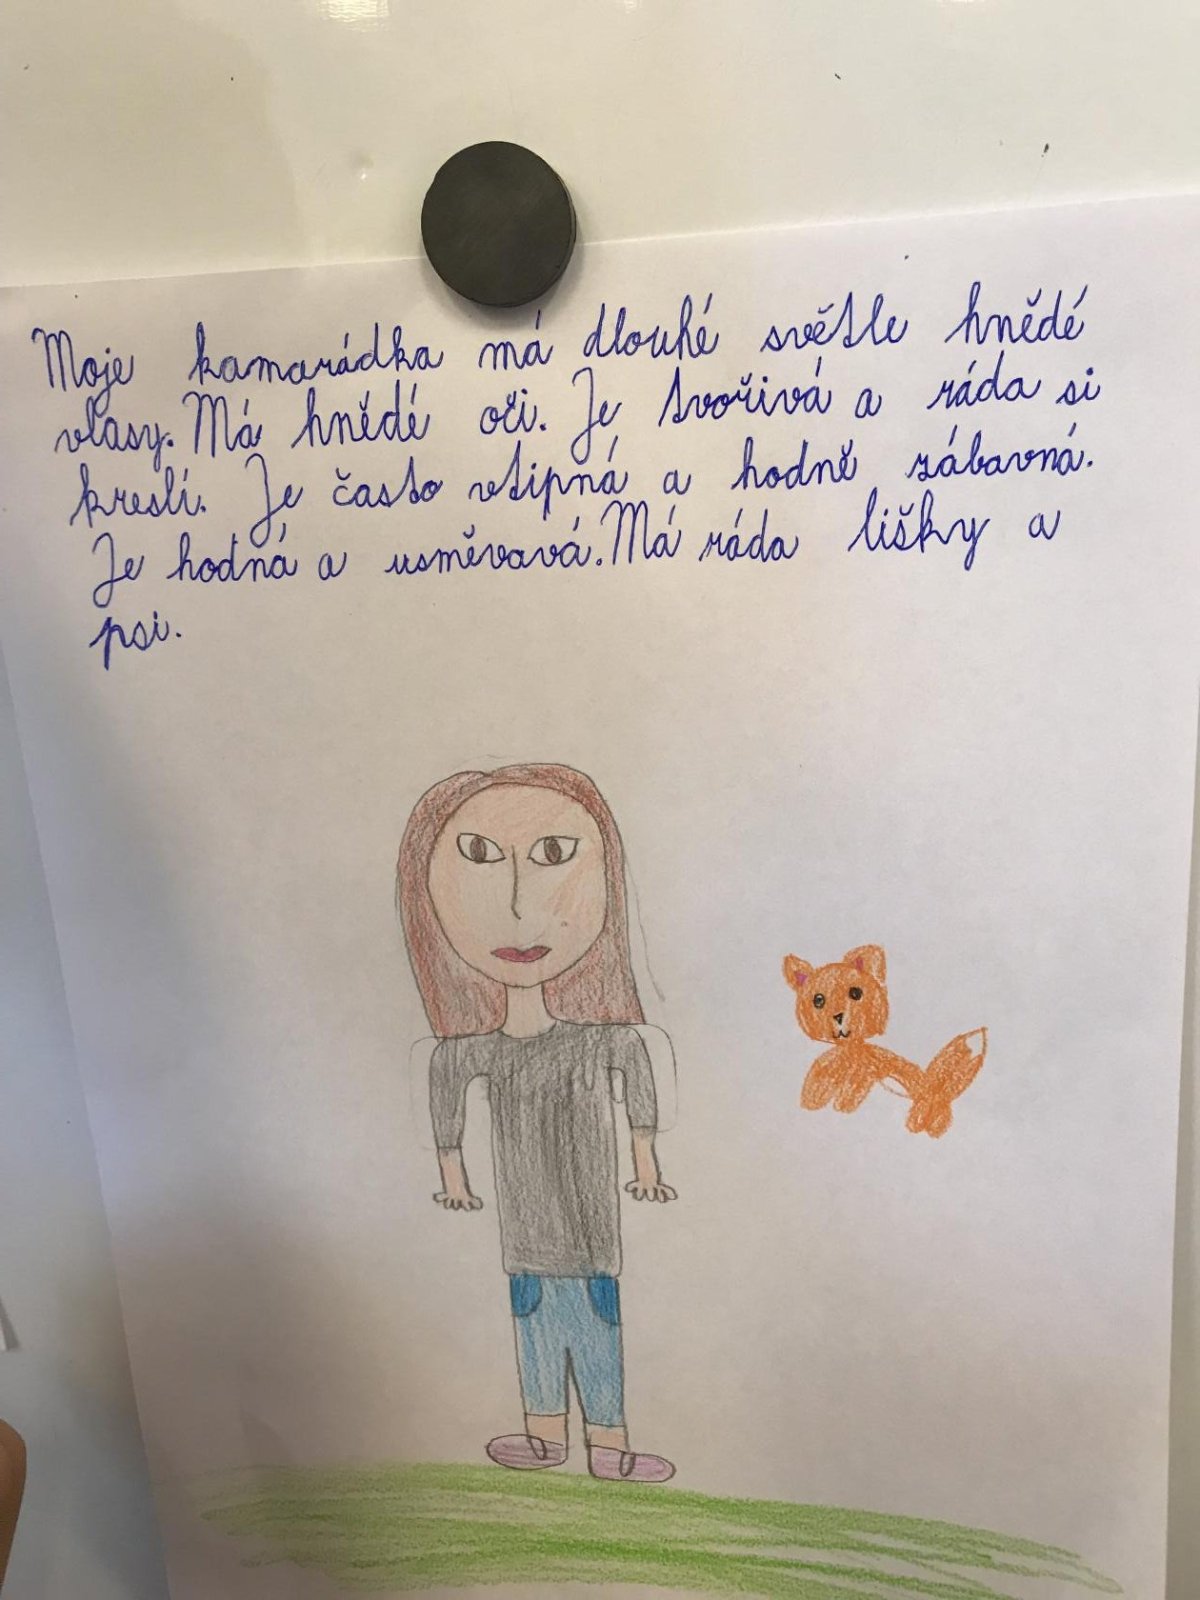 Moje kamarádka má dlouhé světle hnědé
vlasy. Má hnědé oči. Je tvořivá a ráda si
kreslí. Je často vtipná a hodně zábavná.
Je hodná a usměvavá. Má ráda lišky a
psi.